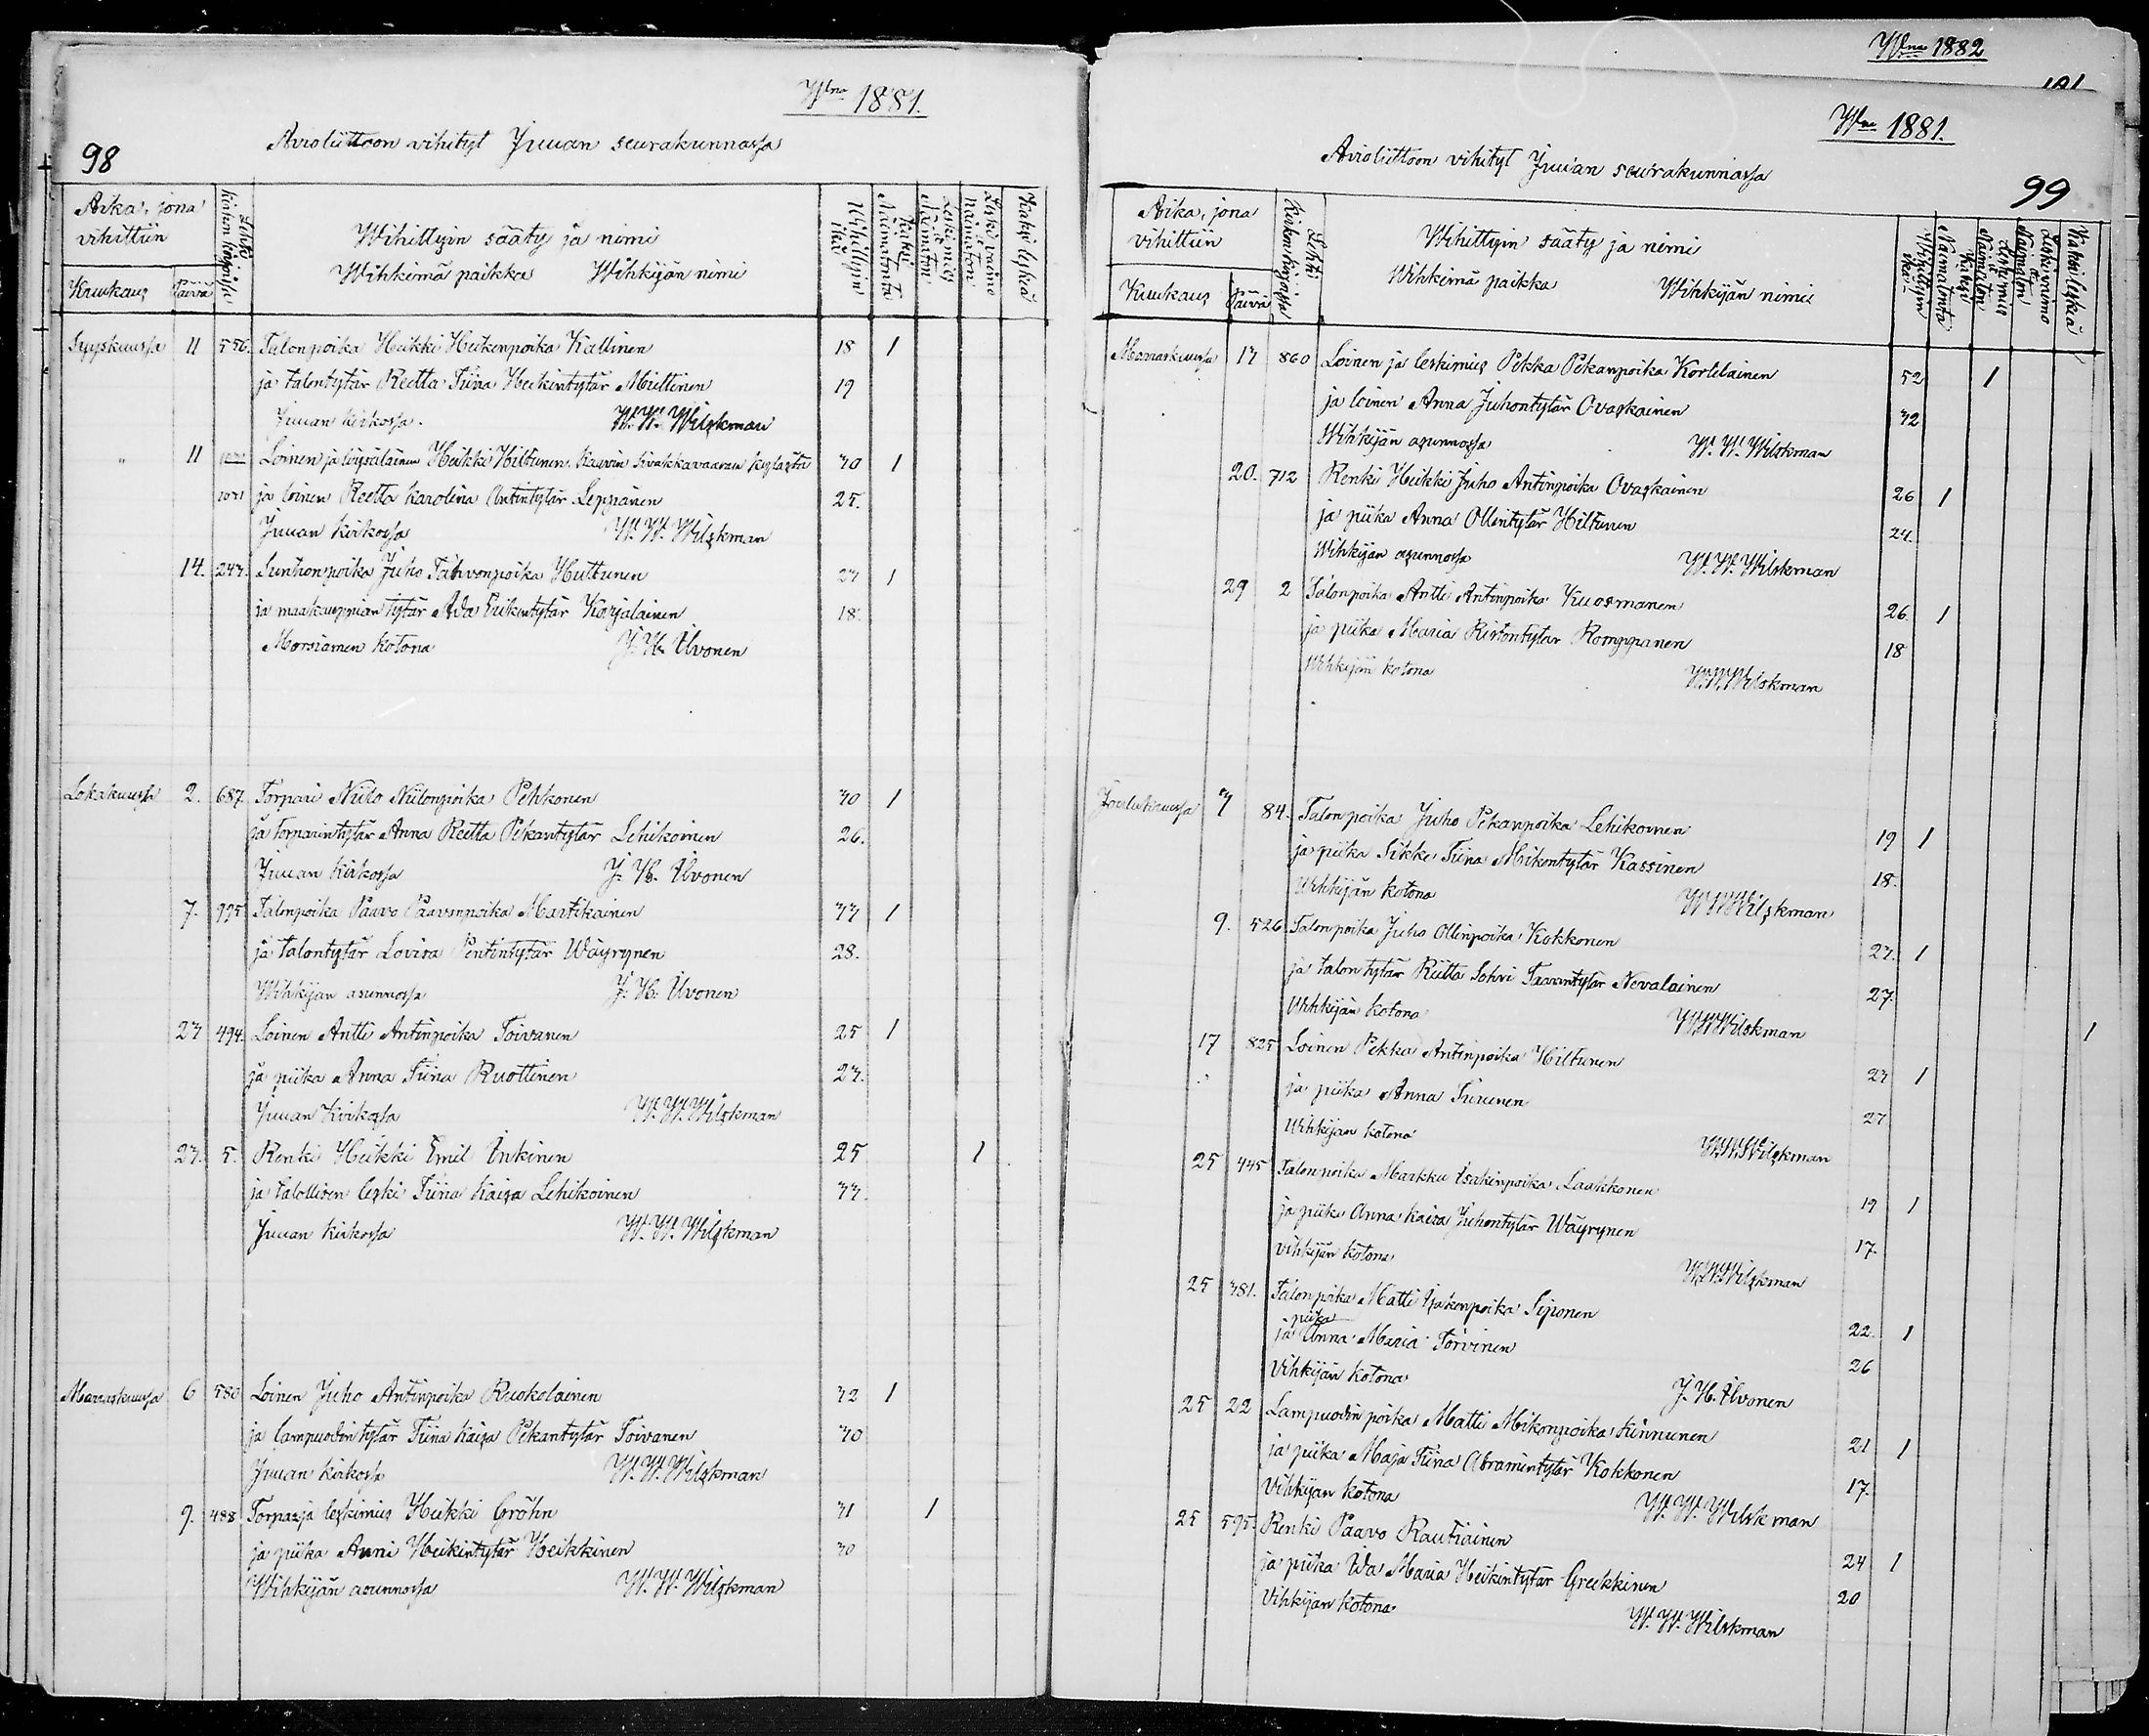 Wna 1881.
98
Avioliittoon vihityt Juuan seurakunnassa
Aika, jona vihittiin
Kuukaus
Päivä
Lehti kirkonkirjassa
Wihittyin sääty ja nimi
Wihkimä paikka Wihkijän nimi
Wihittyin ikä
Kaksi naimatonta
Leskimies ja naimaton
Leskivaimo ja naimaton
Kaksi leskeä
Syyskuussa 11 556. Talonpoika Heikki Heikinpoika Kallinen 18 1
ja talontytär Reetta Tiina Heikintytär Miettinen 19
Juuan kirkossa. W. W. Wilskman
" 11 Loinen ja itsellinen Heikki Hiltunen Kaavin Sivakkavaaran kylästä 30 1
1031 ja loinen Reetta Karolina Antintytär Leppänen 25.
Juuan Kirkossa W. W. Wilskman
14. 243. Suntionpoika Juho Tahvonpoika Huttunen 23 1
ja maakauppiaan tytär Ada Erikintytär Karjalainen 18.
Morsiamen kotona J. H. Alvonen
Lokakuussa 2. 687. Torpari Niilo Niilonpoika Pehkonen 30 1
ja torparintytär Anna Reetta Pekantytär Lehikoinen 26.
Juuan Kirkossa J. H. Alvonen
7. 995 Talonpoika Paavo Paavonpoika Martikainen 33 1
ja talontytär Lovisa Pentintytär Wäyrynen 28.
Wihkijän asunnossa J. H. Alvonen
23 494. Loinen Antti Antinpoika Toivanen 25 1
ja piika Anna Tiina Ruottinen 23.
Juuan Kirkossa W. W. Wilskman
23. 5. Renki Heikki Emil Inkinen 25 1
ja talollisen leski Tiina Kaisa Lehikoinen 33.
Juuan kirkossa W. W. Wilskman
Marraskuussa 6 580 Loinen Juho Antinpoika Ruokolainen 32 1
ja lampuodin tytär Tiina Kaisa Pekantytär Toivanen 30
Juuan kirkossa W. W. Wilskman
9. 488 Torpar ja leskimies Heikki Gröhn 31 1
ja piika Anni Heikintytär Heikkinen 30
Wihkijän asunnossa W. W. Wilskman
Wna 1882
101
Wna 1881.
Avioliittoon vihityt Juuan seurakunnassa
99
Aika, jona vihittiin
Kuukaus
Päivä
Lehti Kirkonkirjassa
Wihittyin sääty ja nimi
Wihkimä paikka Wihkijän nimi
Wihittyin ikä.
Kaksi Naimatonta
Leskimies ja Naimaton
Leskivaimo ja Naimaton
Kaksi leskeä
Marraskuussa 13 860 Loinen ja leskimies Pekka Pekanpoika Kortelainen 52 1
ja loinen Anna Juhontytär Ovaskainen 32
Wihkijän asunnossa W. W. Wilskman
20. 712 Renki Heikki Juho Antinpoika Ovaskainen 26 1
ja piika Anna Ollintytär Hiltunen 24.
Wihkijän asunnossa W. W. Wilskman
29 2 Talonpoika Antti Antinpoika Kuosmanen 26. 1
ja piika Maria Ristontytär Romppanen 18
Wihkijän kotona W. W. Wilskman
Joulukuussa 3 84. Talonpoika Juho Pekanpoika Lehikoinen 19 1
ja piika Sikke Tiina Mikontytär Kassinen 18.
Wihkijän kotona W W Wilskman
9. 526 Talonpoika Juho Ollinpoika Kokkonen 23. 1
ja talon tytär Riitta Sohvi Paavontytär Nevalainen 27.
Wihkijän kotona W W Wilskman
17 825 Loinen Pekka Antinpoika Hiltunen 23 1 1
ja piika Anna Turunen 27
Wihkijän kotona W. W. Wilskman
25 445 Talonpoika Markku Isakinpoika Laakkonen 19 1
ja piika Anna Kaisa Juhontytär Wäyrynen 17.
Vihkijän kotona W. W. Wilskman
25 381. Talonpoika Matti Isakinpoika Siponen 22. 1
ja piika Anna Maria Törvinen 26
Vihkijän kotona J. H. Alvonen
25 22 Lampuodin poika Matti Mikonpoika Kinnunen 21 1
ja piika Maja Tiina Abramintytär Kokkonen 17.
Vihkijän kotona W. W. Wilskman
25 595. Renki Paavo Rautiainen 24 1
ja piika Ida Maria Heikintytär Greekkinen 20
Vihkijän kotona W. W. Wilskman